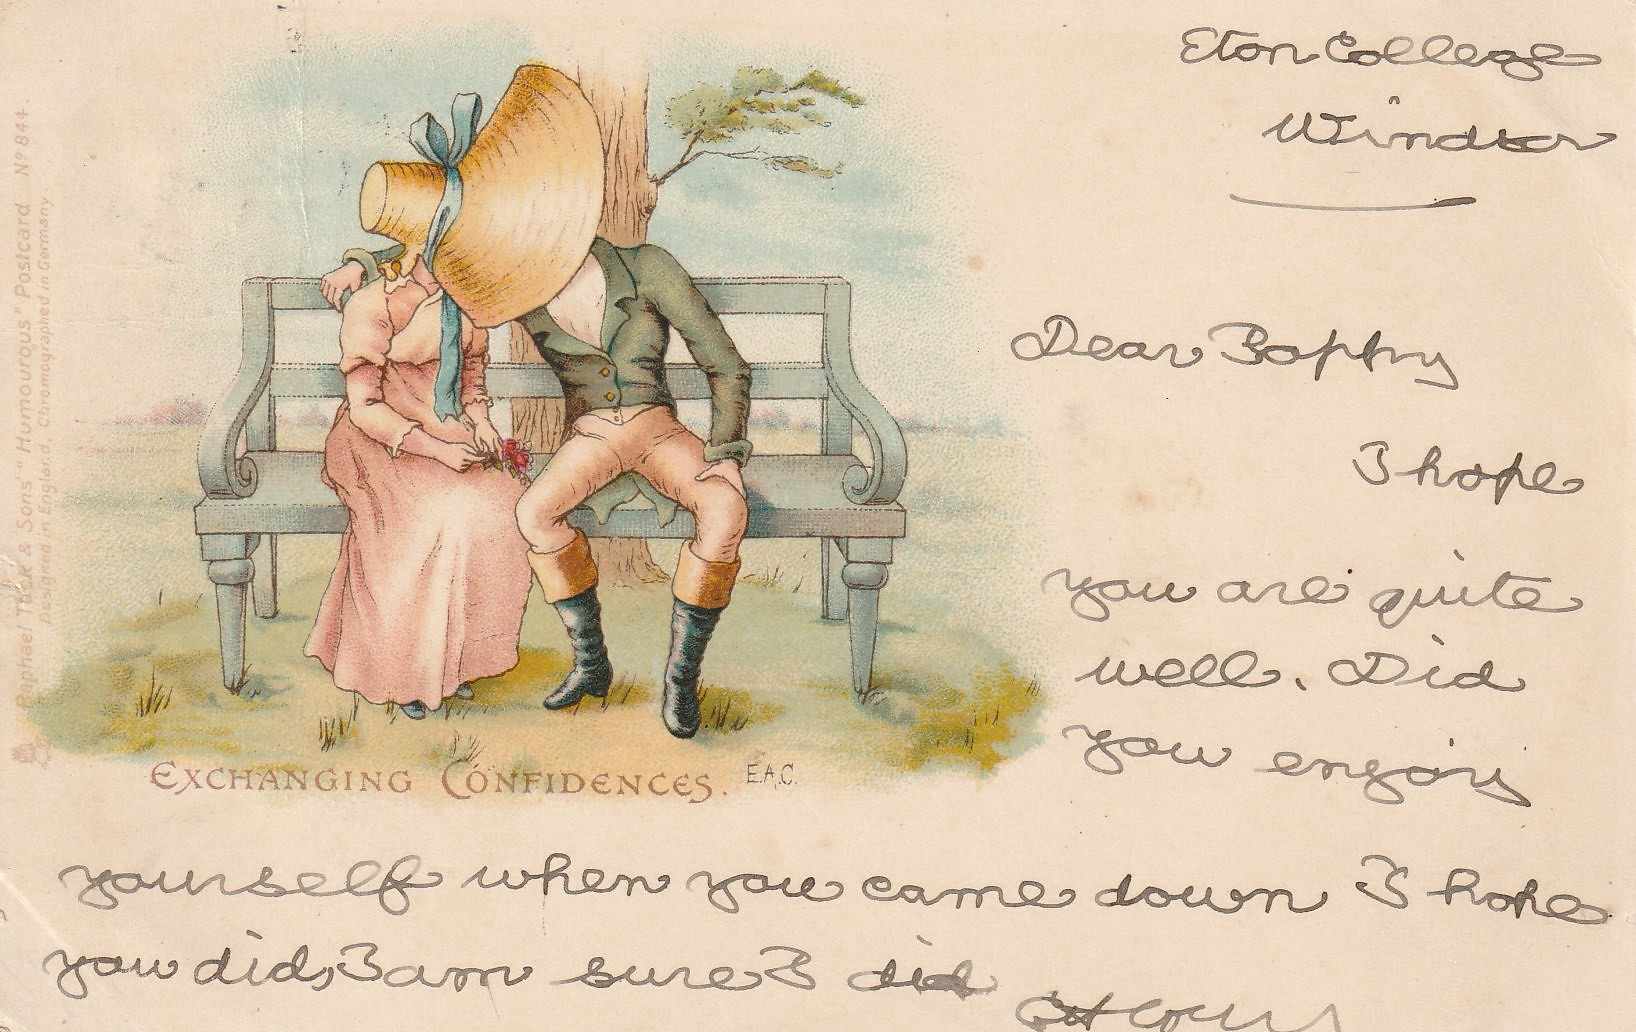 Eton College
Windsor
Dear
I hope
you are quite
well. Did
you enjoy
yourself when you came down I hope
you did, I am sure I did
EXCHANGING CONFIDENCES. E.A.C.
Raphael Tuck & Sons' "Humourous" Postcard Nº 844.
Designed in England. Chromographed in Germany.